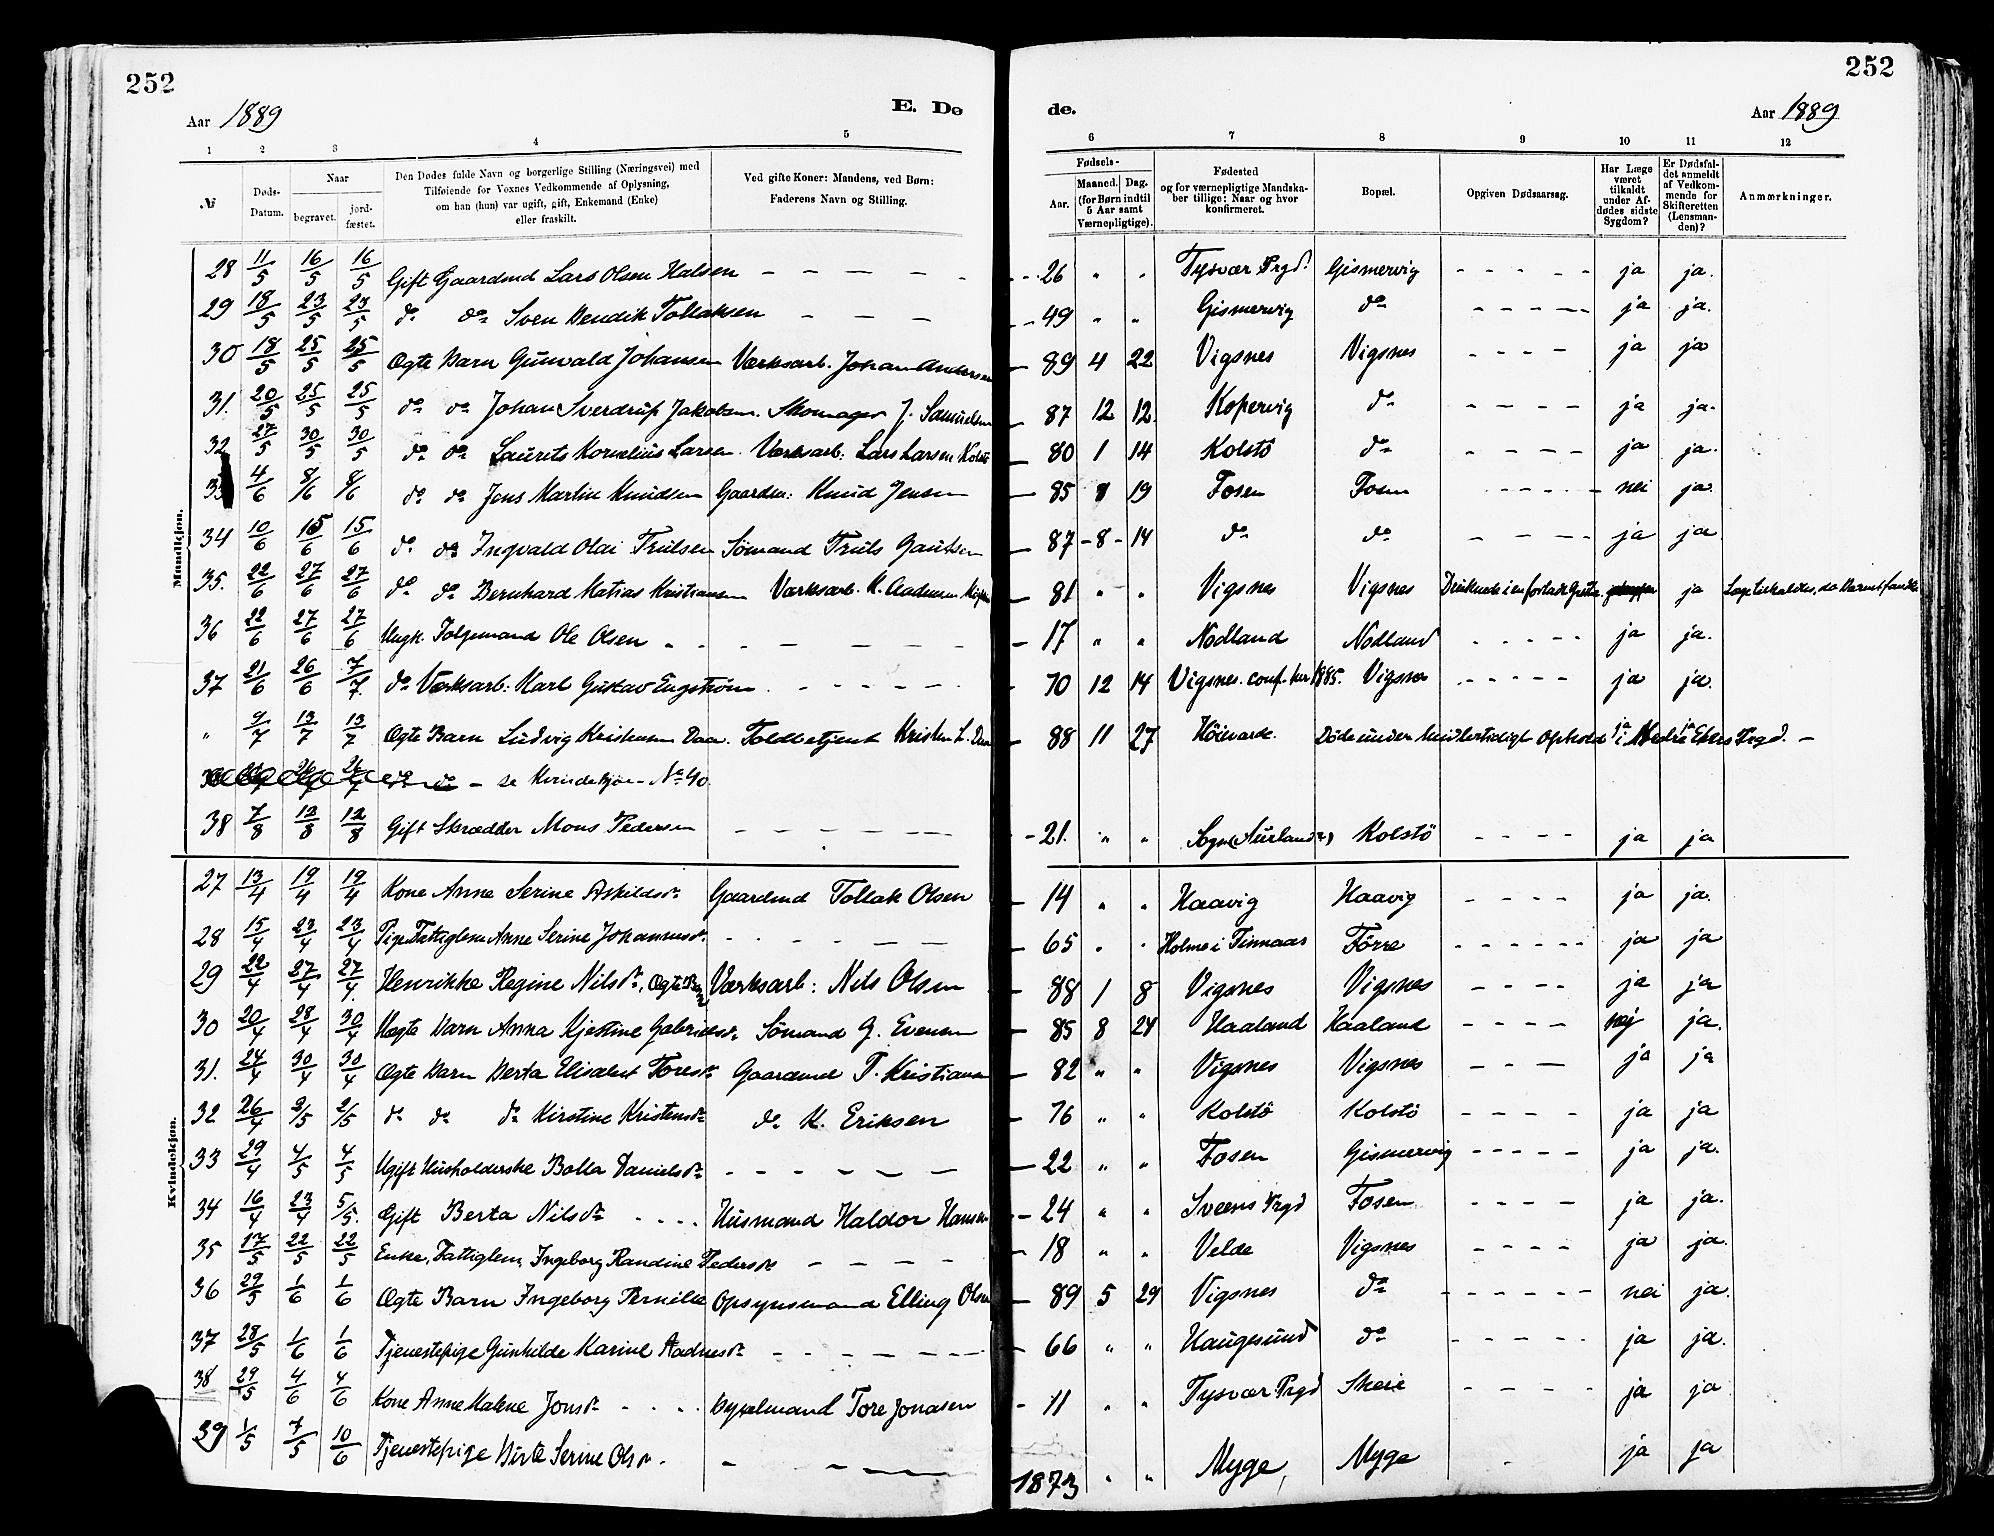 252
252
Aar 1889
E. Dø
de.
Aar 1889
1 2 3 4 5 6 7 8 9 10 11 12
№
Døds-Datum.
Naar
begravet.
jord-fæstet.
Den Dødes fulde Navn og borgerlige Stilling (Næringsvei) med
Tilføiende for Voxnes Vedkommende af Oplysning,
om han (hun) var ugift, gift, Enkemand (Enke)
eller fraskilt.
Ved gifte Koner: Mandens, ved Børn:
Faderens Navn og Stilling.
Fødsels-
Aar.
Maaned. Dag.
(for Børn indtil
5 Aar samt
Værnepligtige).
Fødested
og for værnepligtige Mandska-
ber tillige: Naar og hvor
konfirmeret.
Bopæl.
Opgiven Dødsaarsag.
Har Læge
været
tilkaldt
under Af-
dødes sidste
Sygdom?
Er Dødsfal-
det anmeldt
af Vedkom-
mende for
Skifteretten
(Lensman-
den)?
Anmærkninger.
Mandkjøn.
28 11/5 16/5 16/5 Gift Gaardmd Lars Olsen Halsen - - - - - 26 " " Tysvær Prgd. Gismervig - - - - - ja ja.
29 18/5 23/5 23/5 do do Sven Bendik Tollaksen - - - - 49 " " Gismervig do - - - - - ja ja.
30 18/5 25/5 25/5 Ægte Barn Gunvald Johansen Værksarb. Johan Andersen - 89 4 22 Vigsnes Vigsnes - - - - ja ja
31. 20/5 25/5 25/5 do do Johan Sverdrup Jakobsen. Skomager J. Samuelsen 87 12 12. Kopervig do - - - - ja ja.
32 27/5 30/5 30/5 do do Laurits Kornelius Larsen. Værksarb: Lars Larsen Kolstö - 80 1 14 Kolstö do - - - - ja ja.
33 4/6 8/6 8/6 do do Jens Martin Knudsen Gaardm: Knud Jensen - 85 8 19 Fosen Fosen - - - - - nei ja.
34 10/6 15/6 15/6 do do Ingvald Olai Trulsen Sømand Truls Gautsen - 87 - 8 - 14 do do - - - - ja ja
35. 22/6 27/6 27/6 do do Bernhard Matias Kristiansen Værksarb. K. Aadnesen - 81 " " Vigsnes Vigsnes Druknede i en forladt Grube ja
36 22/6 27/6 27/6 Ungk. Folgemand Ole Olsen - - - - - 17 " " Nodland Nodland - - - - - ja ja.
37 21/6 26/6 7/7 do Værksarb: Karl Gustav Engstrøm - - - - - 70 12 14 Vigsnes. conf. her 1885. Vigsnes - - - - - ja ja.
" 9/7 13/7 13/7 Ægte Barn Ludvig Kristensen Daa. Toldbetjent Kristen L. Daa - 88 11 27 Höievarde. Døde under midlertidigt Ophold i Prgd. -
do do - se Kvindekjøn - No 40.
38 7/8 12/8 12/8 Gift Skrædder Mons Pedersen - - - - - 21. " " Sogn (Aurland?) Kolstö - - - - ja ja
Kvindekjøn.
27 13/4 19/4 19/4 Kone Anne Serine Askildsdr Gaardmd Tollak Olsen - 14 " " Haavig Haavig - - - - ja ja.
28 15/4 23/4 23/4 Pige Fattiglem Anne Serine Johannesdr. - - - - - 65 " " Holme i Finnaas Förre - - - - - - ja ja
29 22/4 27/4 27/4. Henrikke Regine Nilsdr, Ægte Barn Værksarb: Nils Olsen - 88 1 8 Vigsnes Vigsnes - - - - ja ja
30 20/4 28/4 30/4 Uægte Barn Anna Kjestine Gabrielsdr. Sømand G. Evensen - 85 8 24 Haaland Haaland - - - - nej ja.
31. 24/4 30/4 30/4 Ægte Barn Berta Elisabet Toresdr Gaardmd T. Kristiansen - 82 " " Vigsnes Vigsnes - - - ja ja
32 26/4 2/5 2/5 do do do Kirstine Kristensdr do K. Eriksen - 76 " " Kolstö Kolstö - - - - ja ja
33 29/4 4/5 4/5 Ugift Husholderske Bolla Danielsdr - - - - - 22 " " Fosen Gismervig - - - - - ja ja.
34 16/4 23/4 5/5. Gift Berta Nilsdr - - - - Husmand Haldor Hansen - 24 " " Sveens Prgd Fosen - - - - ja ja.
35 17/5 22/5 22/5 Enke, Fattiglem, Ingeborg Randine Pedersdr - - - - - 18 " " Velde Vigsnes - - - - ja ja.
36 29/5 1/6 1/6 Ægte Barn Ingeborg Pernille Opsynsmand Elling Olsen - 89 5 29 Vigsnes do - - - - - - nei ja.
37 28/5 1/6 1/6 Tjenestepige Gunhilde Karine Aadnesdr - - - - - - 66 " " Haugesund do - - - - - ja ja.
38 29/5 4/6 4/6 Kone Anne Malene Jonsdr - - - - Bygselmand Tore Jonasen - 11 " " Tysvær Prgd Skeie - - - - ja ja
39 1/5 7/5 10/6 Tjenestepige Birte Serine Olsdr. - - - 1873 " " Myge, Myge ja ja